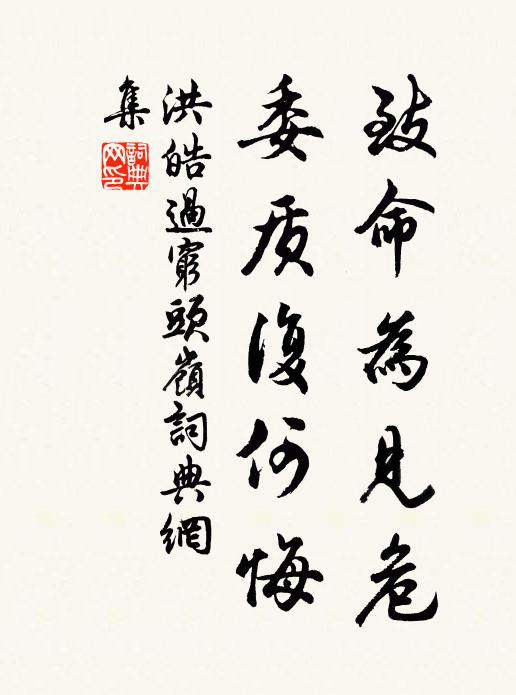 致命為見危
委质復何悔
洪皓過窮頭嶺詞典網
集
詞典网印